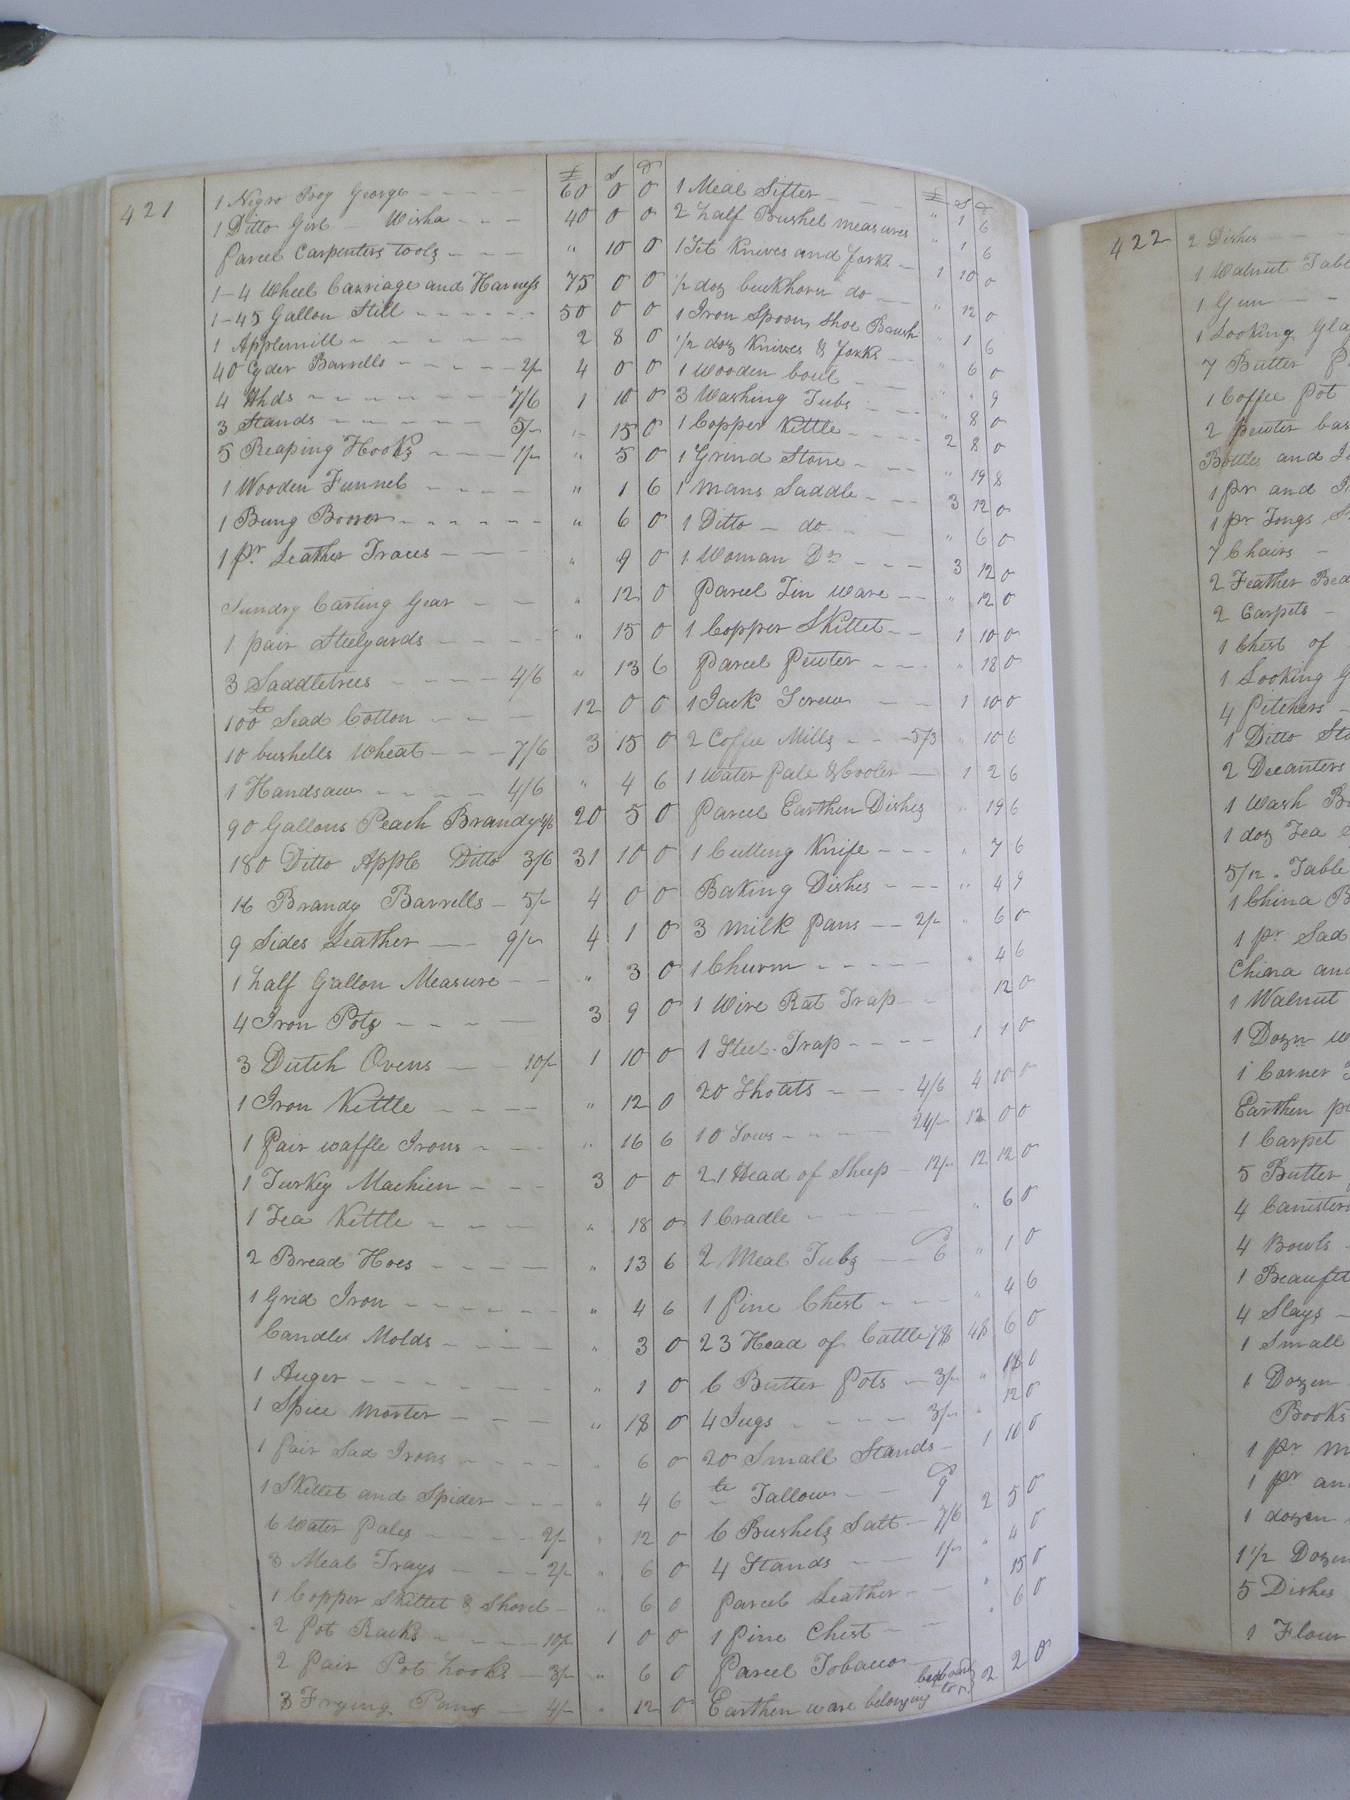 421
£ S D
1 Negro Boy George 60 0 0
1 Ditto Girl Wisha 40 0 0
Parcel Carpenters tools " 10 0
1-4 Wheel Carriage and Harness 75 0 0
1-45 Gallon Still 50 0 0
1 Applemill 2 8 0
40 Cyder Barrells 2/- 4 0 0
4 Hhds 7/6 1 10 0
3 Stands 5/- " 15 0
5 Reaping Hooks 1/- " 5 0
1 Wooden Funnel " 1 6
1 Bung Borer " 6 0
1 pr Leather Traces " 9 0
Sundry Carting Gear " 12 0
1 pair Steelyards " 15 0
3 Saddletrees 4/6 " 13 6
100 lb Sead Cotton 12 0 0
10 bushells Wheat 7/6 3 15 0
1 Handsaw 4/6 " 4 6
90 Gallons Peach Brandy 4/6 20 5 0
180 Ditto Apple Ditto 3/6 31 10 0
16 Brandy Barrells 5/- 4 0 0
9 Sides Leather 9/- 4 1 0
1 half Gallon Measure " 3 0
4 Iron Pots 3 9 0
3 Dutch Ovens 10/- 1 10 0
1 Iron Kettle " 12 0
1 Pair waffle Irons " 16 6
1 Turkey Machien 3 0 0
1 Tea Kettle " 18 0
2 Bread Hoes " 13 6
1 Grid Iron " 4 6
Candles Molds " 3 0
1 Auger " 1 0
1 Spice Morter " 18 0
1 Pair Sad Irons " 6 0
1 Skillet and Spider " 4 6
6 Water Pales 2/- " 12 0
3 Meal Trays 2/- " 6 0
1 Copper Skillet & Shovel " 6 0
2 Pot Racks 10/- 1 0 0
2 Pair Pot hooks 3/- " 6 0
3 Frying Pans 4/- " 12 0
£ S D
1 Meal Sifter " 1 6
2 half Bushel measures " 1 6
1 Set Knives and Forks 1 10 0
1/2 doz buckhorn do " 12 0
1 Iron Spoon, Shoe Brush " 1 6
1/2 doz Knives & Forks " 6 0
1 Wooden boul " " 9
3 Washing Tubs " 8 0
1 Copper Kettle 2 8 0
1 Grind Stone " 19 8
1 Mans Saddle 3 12 0
1 Ditto do " 6 0
1 Woman Do 3 12 0
Parcel Tin ware " 12 0
1 Copper Skillet 1 10 0
Parcel Pewter " 18 0
1 Jack Screw 1 10 0
2 Coffee Mills 5/3 " 10 6
1 Water Pale & Cooler 1 2 6
Parcel Earthen Dishes " 19 6
1 Cutting Knife " 7 6
Baking Dishes " 4 9
3 Milk Pans 2/- " 6 0
1 Churn " 4 6
1 Wire Rat Trap 12 0
1 Steel Trap 1 1 0
20 Shoats 4/6 4 10 0
10 Sows 24/- 12 0 0
21 Head of Sheep 12/- 12 12 0
1 Cradle " 6 0
2 Meal Tubs 6 " 1 0
1 Pine Chest " 4 6
23 Head of Cattle 48 6 0
6 Butter Pots 3/- " 18 0
4 Jugs 3/- " 12 0
20 Small Stands 1 10 0
lb Tallow 9 2 5 0
6 Bushels Salt 7/6
4 Stands 1/- " 4 0
Parcel Leather " 15 0
1 Pine Chest " 6 0
Parcel Tobacco
Earthen ware belonging to 2 2 0
422
2 Dishes
1 Walnut Tabl
1 Gun
1 Looking Gla
7 Butter P
1 Coffee Pot
2 pewter bas
Bottles and
1 pr and
1 pr Tongs
7 Chairs
2 Feather Bed
2 Carpets
1 Chest of
1 Looking G
4 Pitchers
1 Ditto Sto
2 Decanters
1 Wash B
1 doz Tea
5/12 Table
1 China B
1 pr Sad
China and
1 Walnut
1 Dozn
1 Corner
Earthen p
1 Carpet
5 Butter
4 Canisters
4 Bowls
1 Beaufet
4 Slays
1 Small
1 Dozen
Books
1 pr
1 pr an
1 dozen
1 1/2 Dozen
5 Dishes
1 Flour